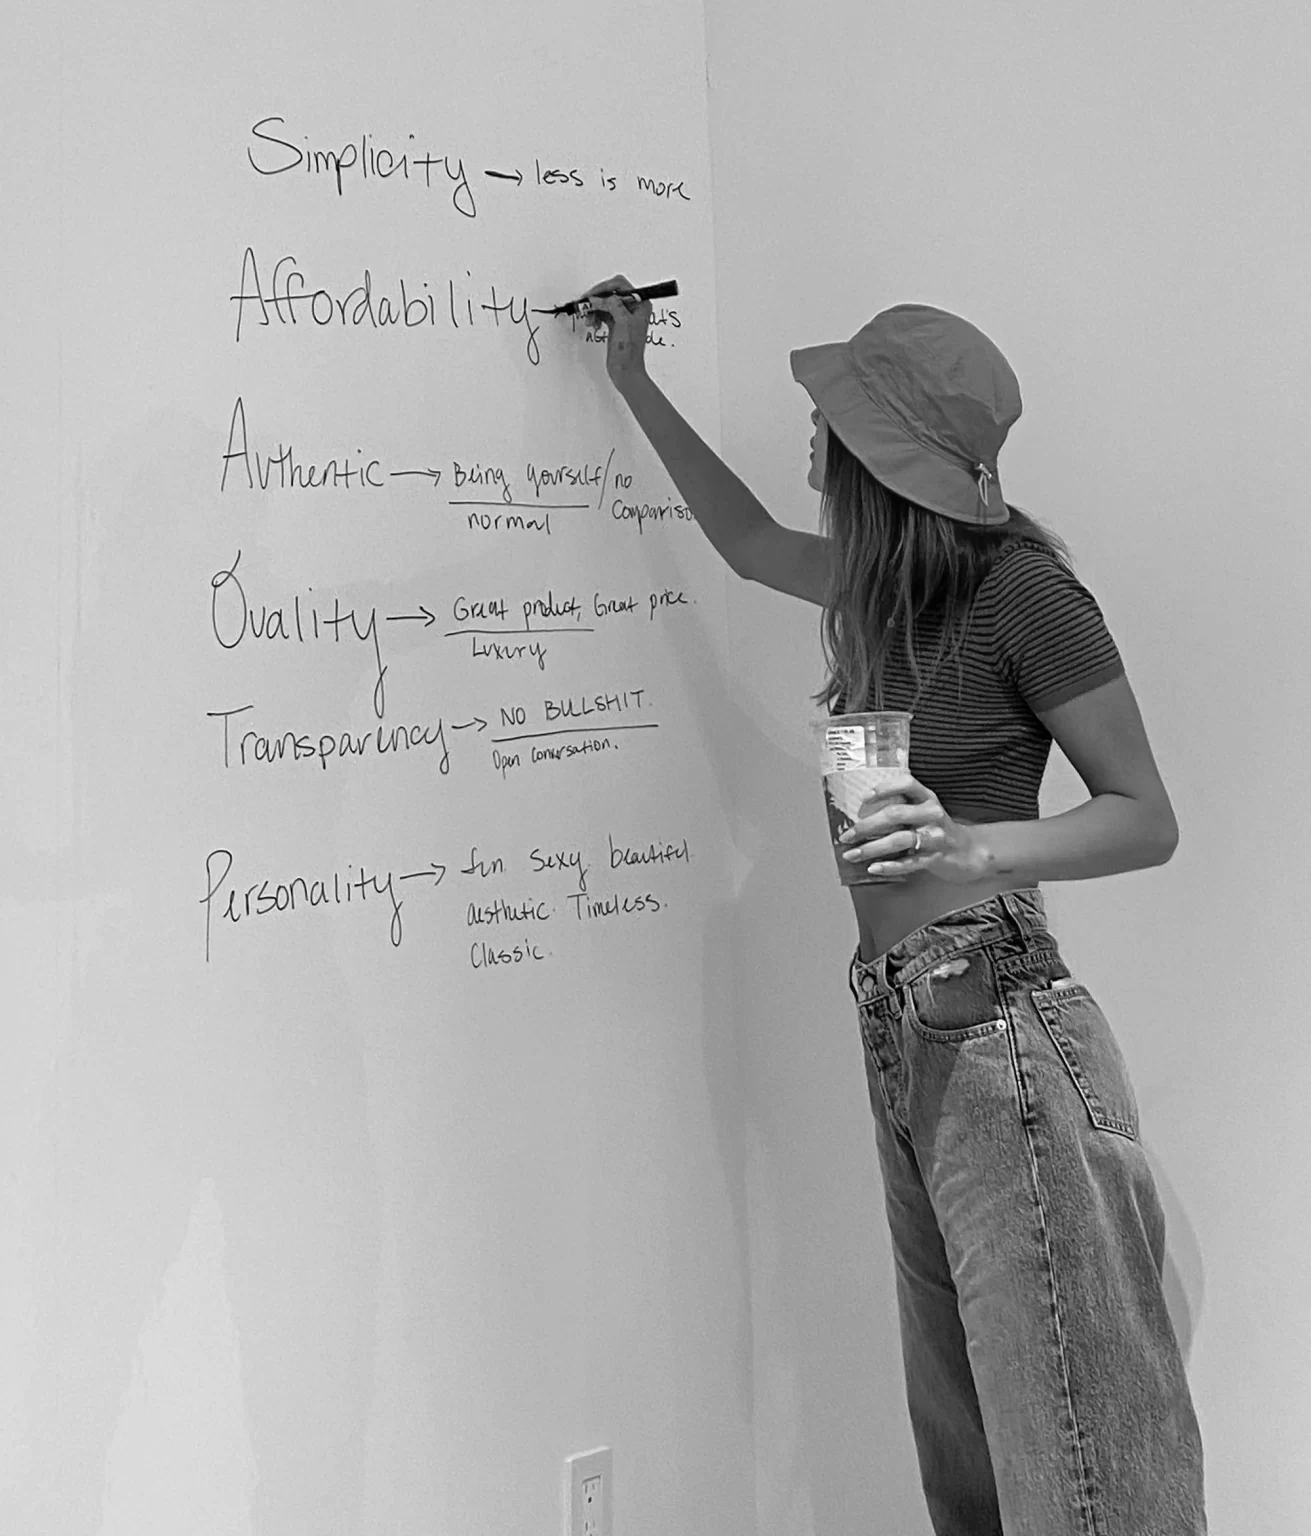 Simplicity → less is more
Affordability →
not
Authentic → Being yourself/no
normal
Comparison
Quality → Great product, Great price.
Luxury
Transparency → NO BULLSHIT.
Open Conversation.
Personality → fun. Sexy. beautiful.
aesthetic. Timeless.
Classic.